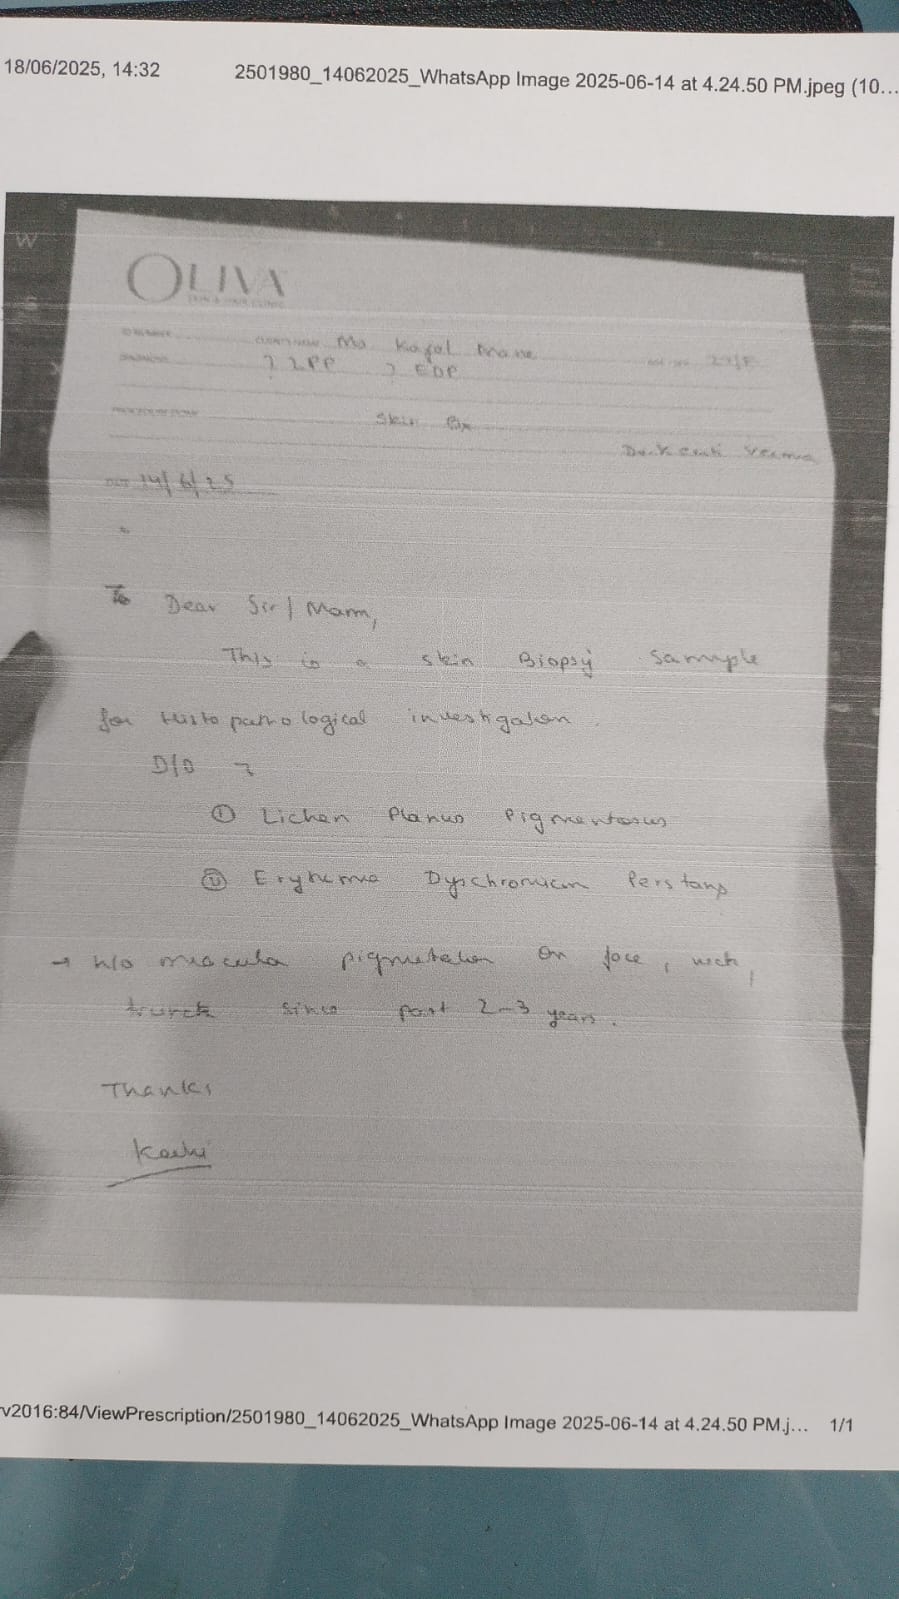 18/06/2025, 14:32 2501980_14062025_WhatsApp Image 2025-06-14 at 4.24.50 PM.jpeg (10...
OLIVA
SKIN & HAIR CLINIC
Ms Kajal Mane
? LPP ? EDP
Skin Bx
Verma
14/6/25
To Dear Sir/Mam,
This is a skin Biopsy sample
for Histopathological investigation.
D/D ?
① Lichen Planus Pigmentosus
② Dyschromicum Perstans
→ h/o macular pigmentation on face, neck,
trunk since past 2-3 years.
Thanks
v2016:84/ViewPrescription/2501980_14062025_WhatsApp Image 2025-06-14 at 4.24.50 PM.j... 1/1